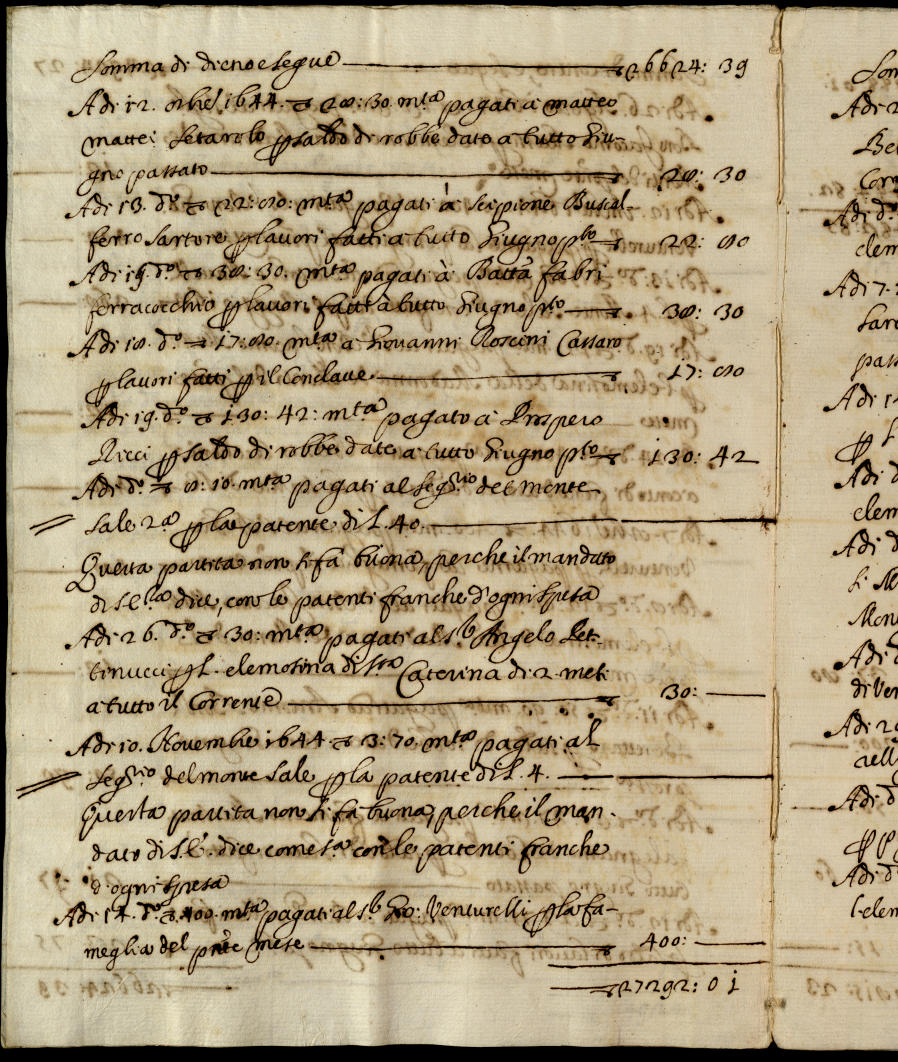 Somma di dieno e segue 26624: 39
Adi 12. Ottobre 1644. ∇ 28: 30. mta pagati à matteo
mattei Setarolo p saldo di robbe dato a tutto Giu-
gno passato 28: 30
Adi 13. do ∇ 22: 80: mta pagati à Scipione Buffal-
ferro Sartore p lavori fatti a tutto Giugno pto 22: 80
Adi 15 do ∇ 38: 30. mta pagati à Batta fabri
ferracocchio p lavori fatti à tutto Giugno pto 38: 30
Adi 18. do ∇ 17: 80. mta a Giovanni Roscini
p lavori fatti p il Conclave 17: 80
Adi 19. do ∇ 130: 42: mta pagato a Prospero
Ricci p saldo di robbe date a tutto Giugno pto 130: 42
Adi do ∇ 8: 10. mta pagati al Segrio del monte
Sale 2a p la patente di L. 40.
Questa partita non si fa buona, perche il mandato
di S. E. dice, con le patenti franche d'ogni spesa
Adi 26. do ∇ 30: mta pagati al Sr Angelo Pet-
tinucci p L. elemosina di Sta Caterina di 2. mesi
a tutto il Corrente 30:
Adi 10. Novembre 1644 ∇ 3: 70. mta pagati al
Segrio del monte Sale p la patente di L. 4.
Questa partita non si fa buona, perche il man-
dato di S. E. dice come sa. con le patenti franche
d'ogni spesa
Adi 14. do ∇ 400. mta pagati al Sr Gio: Venturelli p la fa-
meglia del pnte mese 400:
27292: 01